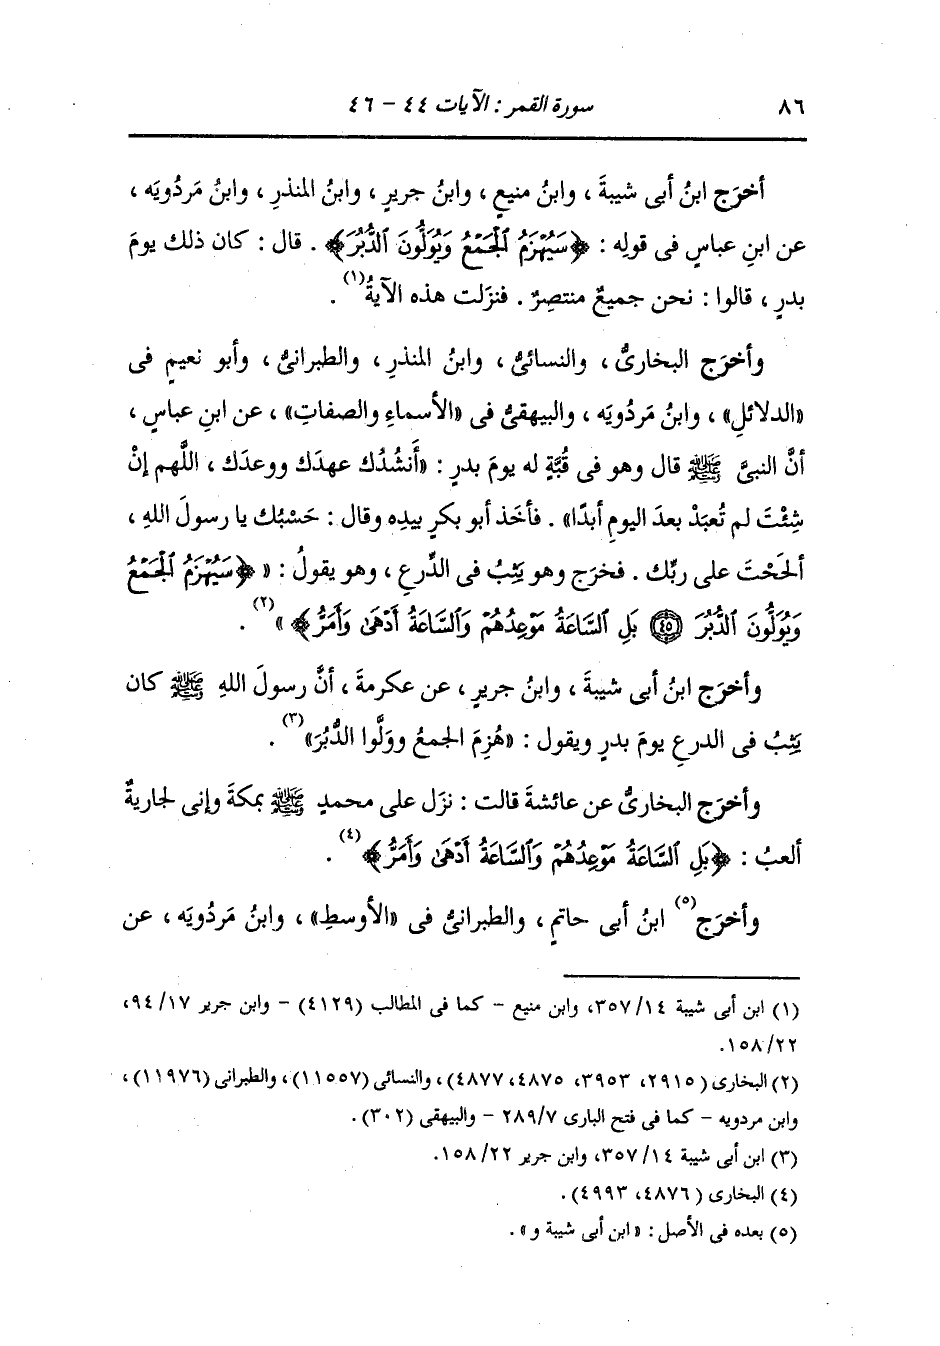 ٨٦ سورة القمر : الآيات ٤٤ – ٤٦
أخرَج ابنُ أبى شيبةَ ، وابنُ منيعٍ ، وابنُ جريرٍ ، وابنُ المنذرِ ، وابنُ مَردُويَه ،
عن ابنِ عباسٍ فى قولِه : ﴿سَيُهْزَمُ ٱلْجَمْعُ وَيُوَلُّونَ ٱلدُّبُرَ﴾ . قال : كان ذلك يومَ
بدرٍ ، قالوا : نحن جميعٌ منتصِرٌ . فنزَلت هذه الآيةُ(١) .
وأخرَج البخارىُّ ، والنسائىُّ ، وابنُ المنذرِ ، والطبرانىُّ ، وأبو نعيمٍ فى
«الدلائلِ» ، وابنُ مَردُويَه ، والبيهقىُّ فى «الأسماءِ والصفاتِ» ، عن ابنِ عباسٍ ،
أنَّ النبىَّ ﷺ قال وهو فى قُبَّةٍ له يومَ بدرٍ : «أَنشُدُك عهدَك ووعدَك ، اللَّهم إنْ
شِئْتَ لم تُعبَدْ بعدَ اليومِ أبدًا» . فأخَذ أبو بكرٍ بيدِه وقال : حَسْبُك يا رسولَ اللهِ ،
ألحَحْتَ على ربِّك . فخرَج وهو يَثِبُ فى الدِّرعِ ، وهو يقولُ : « ﴿سَيُهْزَمُ ٱلْجَمْعُ
وَيُوَلُّونَ ٱلدُّبُرَ ۝٤٥ بَلِ ٱلسَّاعَةُ مَوْعِدُهُمْ وَٱلسَّاعَةُ أَدْهَىٰ وَأَمَرُّ﴾ »(٢) .
وأخرَج ابنُ أبى شيبةَ ، وابنُ جريرٍ ، عن عكرمةَ ، أنَّ رسولَ اللهِ ﷺ كان
يَثِبُ فى الدرعِ يومَ بدرٍ ويقول : «هُزِمَ الجمعُ ووَلَّوا الدُّبُرَ»(٣) .
وأخرَج البخارىُّ عن عائشةَ قالت : نزَل على محمدٍ ﷺ بمكةَ وإنى لجاريةٌ
ألعبُ : ﴿بَلِ ٱلسَّاعَةُ مَوْعِدُهُمْ وَٱلسَّاعَةُ أَدْهَىٰ وَأَمَرُّ﴾(٤) .
وأخرَج(٥) ابنُ أبى حاتمٍ ، والطبرانىُّ فى «الأوسطِ» ، وابنُ مَردُويَه ، عن
(١) ابن أبى شيبة ٣٥٧/١٤، وابن منيع – كما فى المطالب (٤١٢٩) – وابن جرير ٩٤/١٧،
١٥٨/٢٢.
(٢) البخارى (٢٩١٥، ٣٩٥٣، ٤٨٧٥، ٤٨٧٧)، والنسائى (١١٥٥٧)، والطبرانى (١١٩٧٦)،
وابن مردويه – كما فى فتح البارى ٢٨٩/٧ – والبيهقى (٣٠٢).
(٣) ابن أبى شيبة ٣٥٧/١٤، وابن جرير ١٥٨/٢٢.
(٤) البخارى (٤٨٧٦، ٤٩٩٣).
(٥) بعده فى الأصل : « ابن أبى شيبة و» .